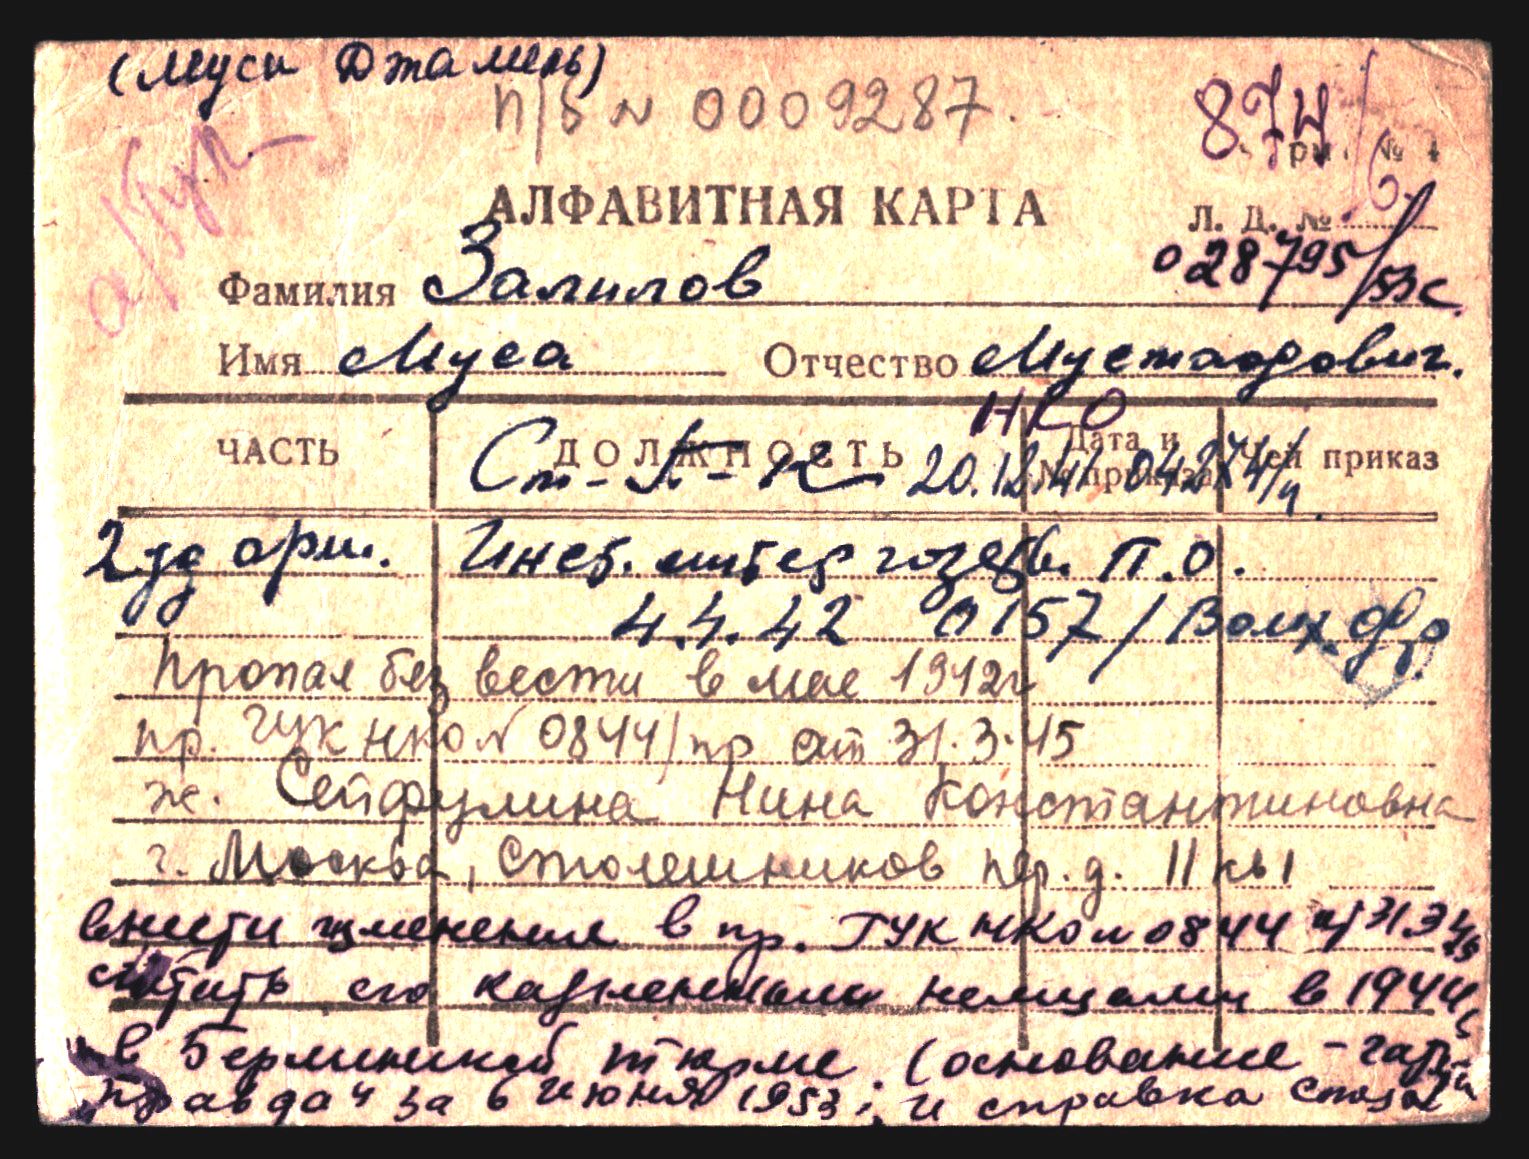 (Муса Джалиль)
п/б № 0009287.
а/бук
АЛФАВИТНАЯ КАРТА
Л. Д. №
028795/53с.
Фамилия Залилов
Имя Муса Отчество Мустафович.
НКО
ЧАСТЬ ДОЛЖНОСТЬ Дата и № приказа Чей приказ
Ст-П-К 20.12.41 04274/п.
2 уд арм. Инстр. литер газеты. П.О.
4.4.42 0157/Волх. фр.
Пропал без вести в мае 1942г
пр. ГУК НКО № 0844/пр от 31.3.45
ж. Сейфулина Нина Константиновна
г. Москва, Столешников пер. д. 11 кв 1
внести изменения в пр. ГУК НКО № 0844 от 31.3.45
считать его казненным немцами в 1944г
в Берлинской тюрме. (основание -
правда" за 6 июня 1953; и справка